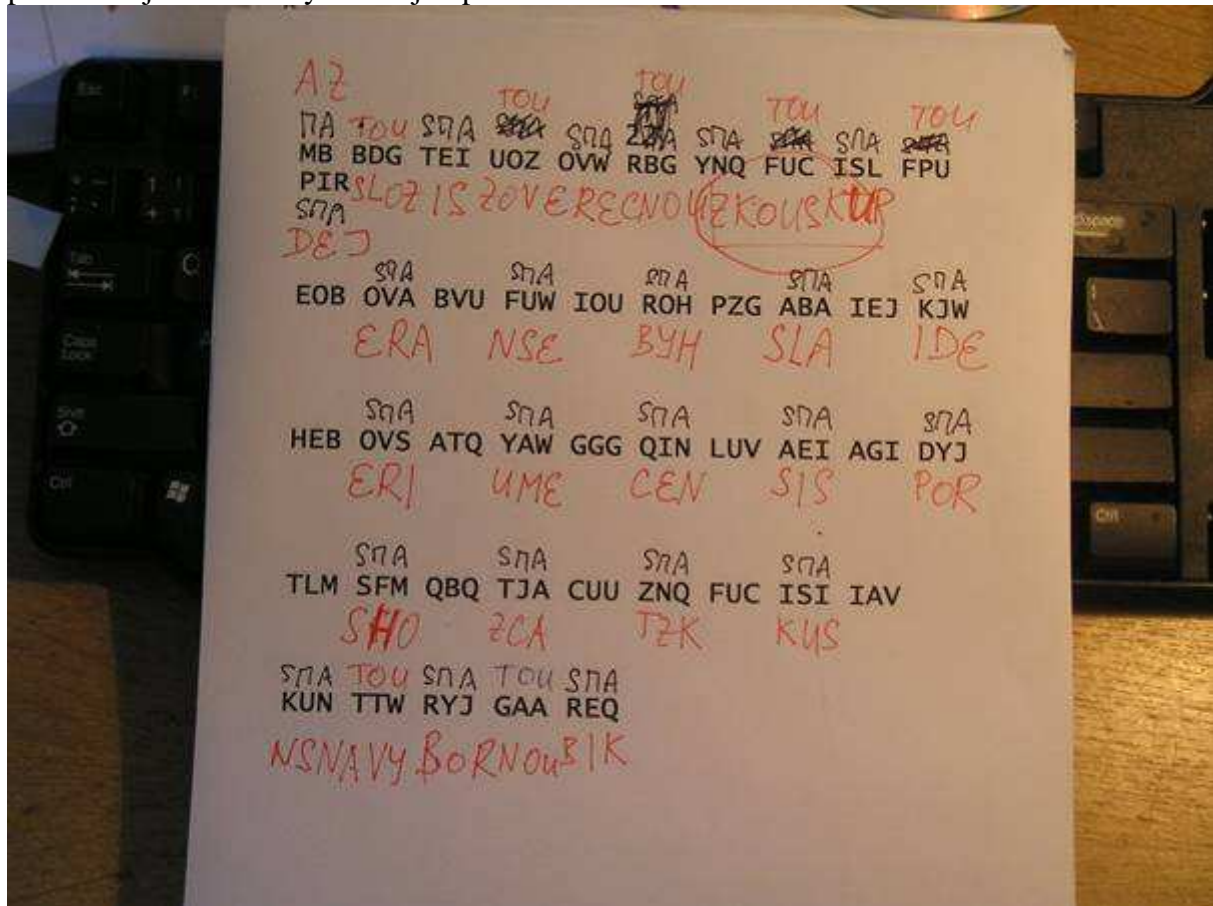 AZ TOU
MA TOU SMA TOU SMA SMA TOU SMA TOU
MB BDG TEI UOZ OVW RBG YNQ FUC ISL FPU
PIR SLOZISZOVERECNOUZKOUSKUP
SMA
DEJ
SMA SMA SMA SMA SMA
EOB OVA BVU FUW IOU ROH PZG ABA IEJ KJW
ERA NSE BYH SLA IDE
SMA SMA SMA SMA SMA
HEB OVS ATQ YAW GGG QIN LUV AEI AGI DYJ
ERI UME CEN SIS POR
SMA SMA SMA SMA
TLM SFM QBQ TJA CUU ZNQ FUC ISI IAV
SHO ZCA TZK KUS
SMA TOU SMA TOU SMA
KUN TTW RYJ GAA REQ
NSNAVYBORNOUBIK